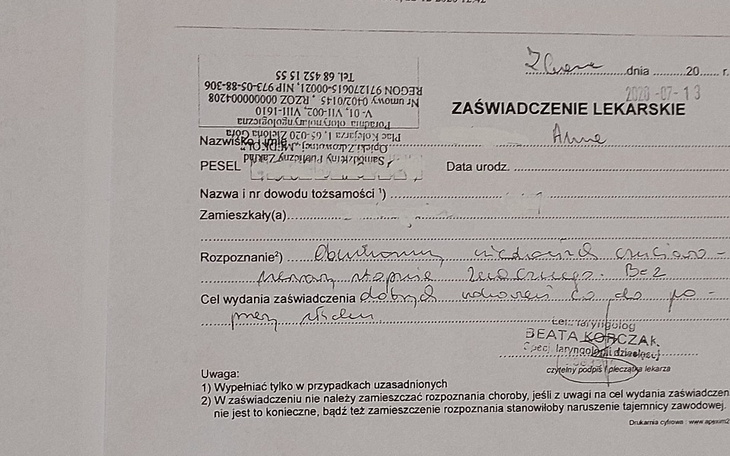 dnia 20 r.
2020 -07- 13
ZAŚWIADCZENIE LEKARSKIE
Tel. 68 452 15 55
REGON 971270615-00021, NIP 973-05-88-306
Nr umowy 0402/0145 , RZOZ 000000004208
V- 01, VII-002, VIII-1610
Poradnia otorynolaryngologiczna
Plac Kolejarza 1, 65-020 Zielona Góra
Opieki Zdrowotnej "MEDKOL"
Samodzielny Publiczny Zakład
Nazwisko i imię Anna
PESEL Data urodz.
Nazwa i nr dowodu tożsamości ¹)
Zamieszkały(a)
Rozpoznanie²) Obustronny niedosłuch czuciowo -
nerwowy stopnia znacznego.
Cel wydania zaświadczenia co do po-
Lekarz laryngolog
BEATA KORCZAK
Specj. laryngologii dziecięcej
czytelny podpis i pieczątka lekarza
Uwaga:
1) Wypełniać tylko w przypadkach uzasadnionych
2) W zaświadczeniu nie należy zamieszczać rozpoznania choroby, jeśli z uwagi na cel wydania zaświadczen
nie jest to konieczne, bądź też zamieszczenie rozpoznania stanowiłoby naruszenie tajemnicy zawodowej.
Drukarnia cyfrowa : www.apexim2